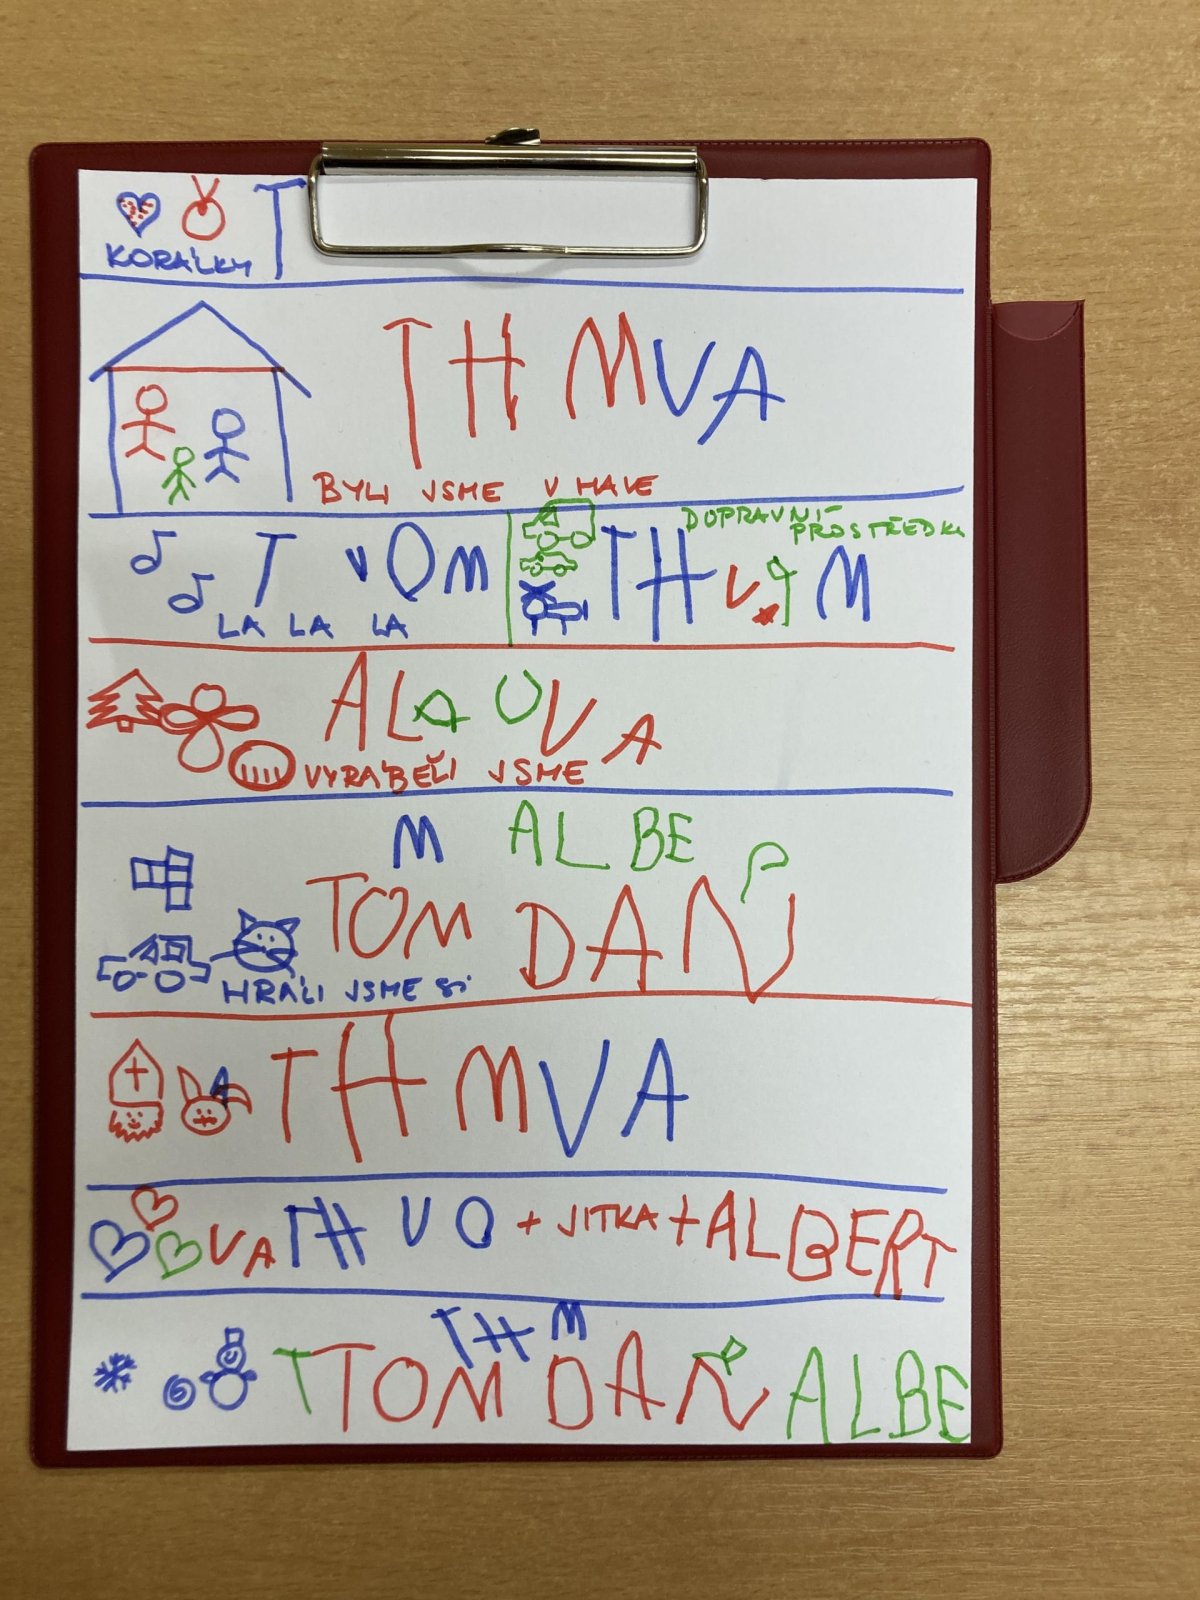 T
KORÁLKY
THMVA
BYLI JSME V HALE
T VOM
LA LA LA
DOPRAVNÍ
PROSTŘEDKY
TH V M
ALA UVA
VYRÁBĚLI JSME
M ALBE
TOM DAN
HRÁLI JSME SI
THMVA
VA TH VO + JITKA + ALBERT
THM
T TOM DAN ALBE